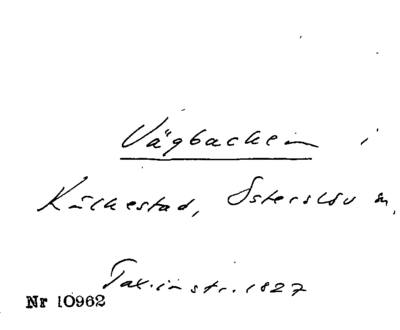 Vägbacken i
Kälkestad, Österslöv sn,
Tax.instr. 1827
Nr 10962